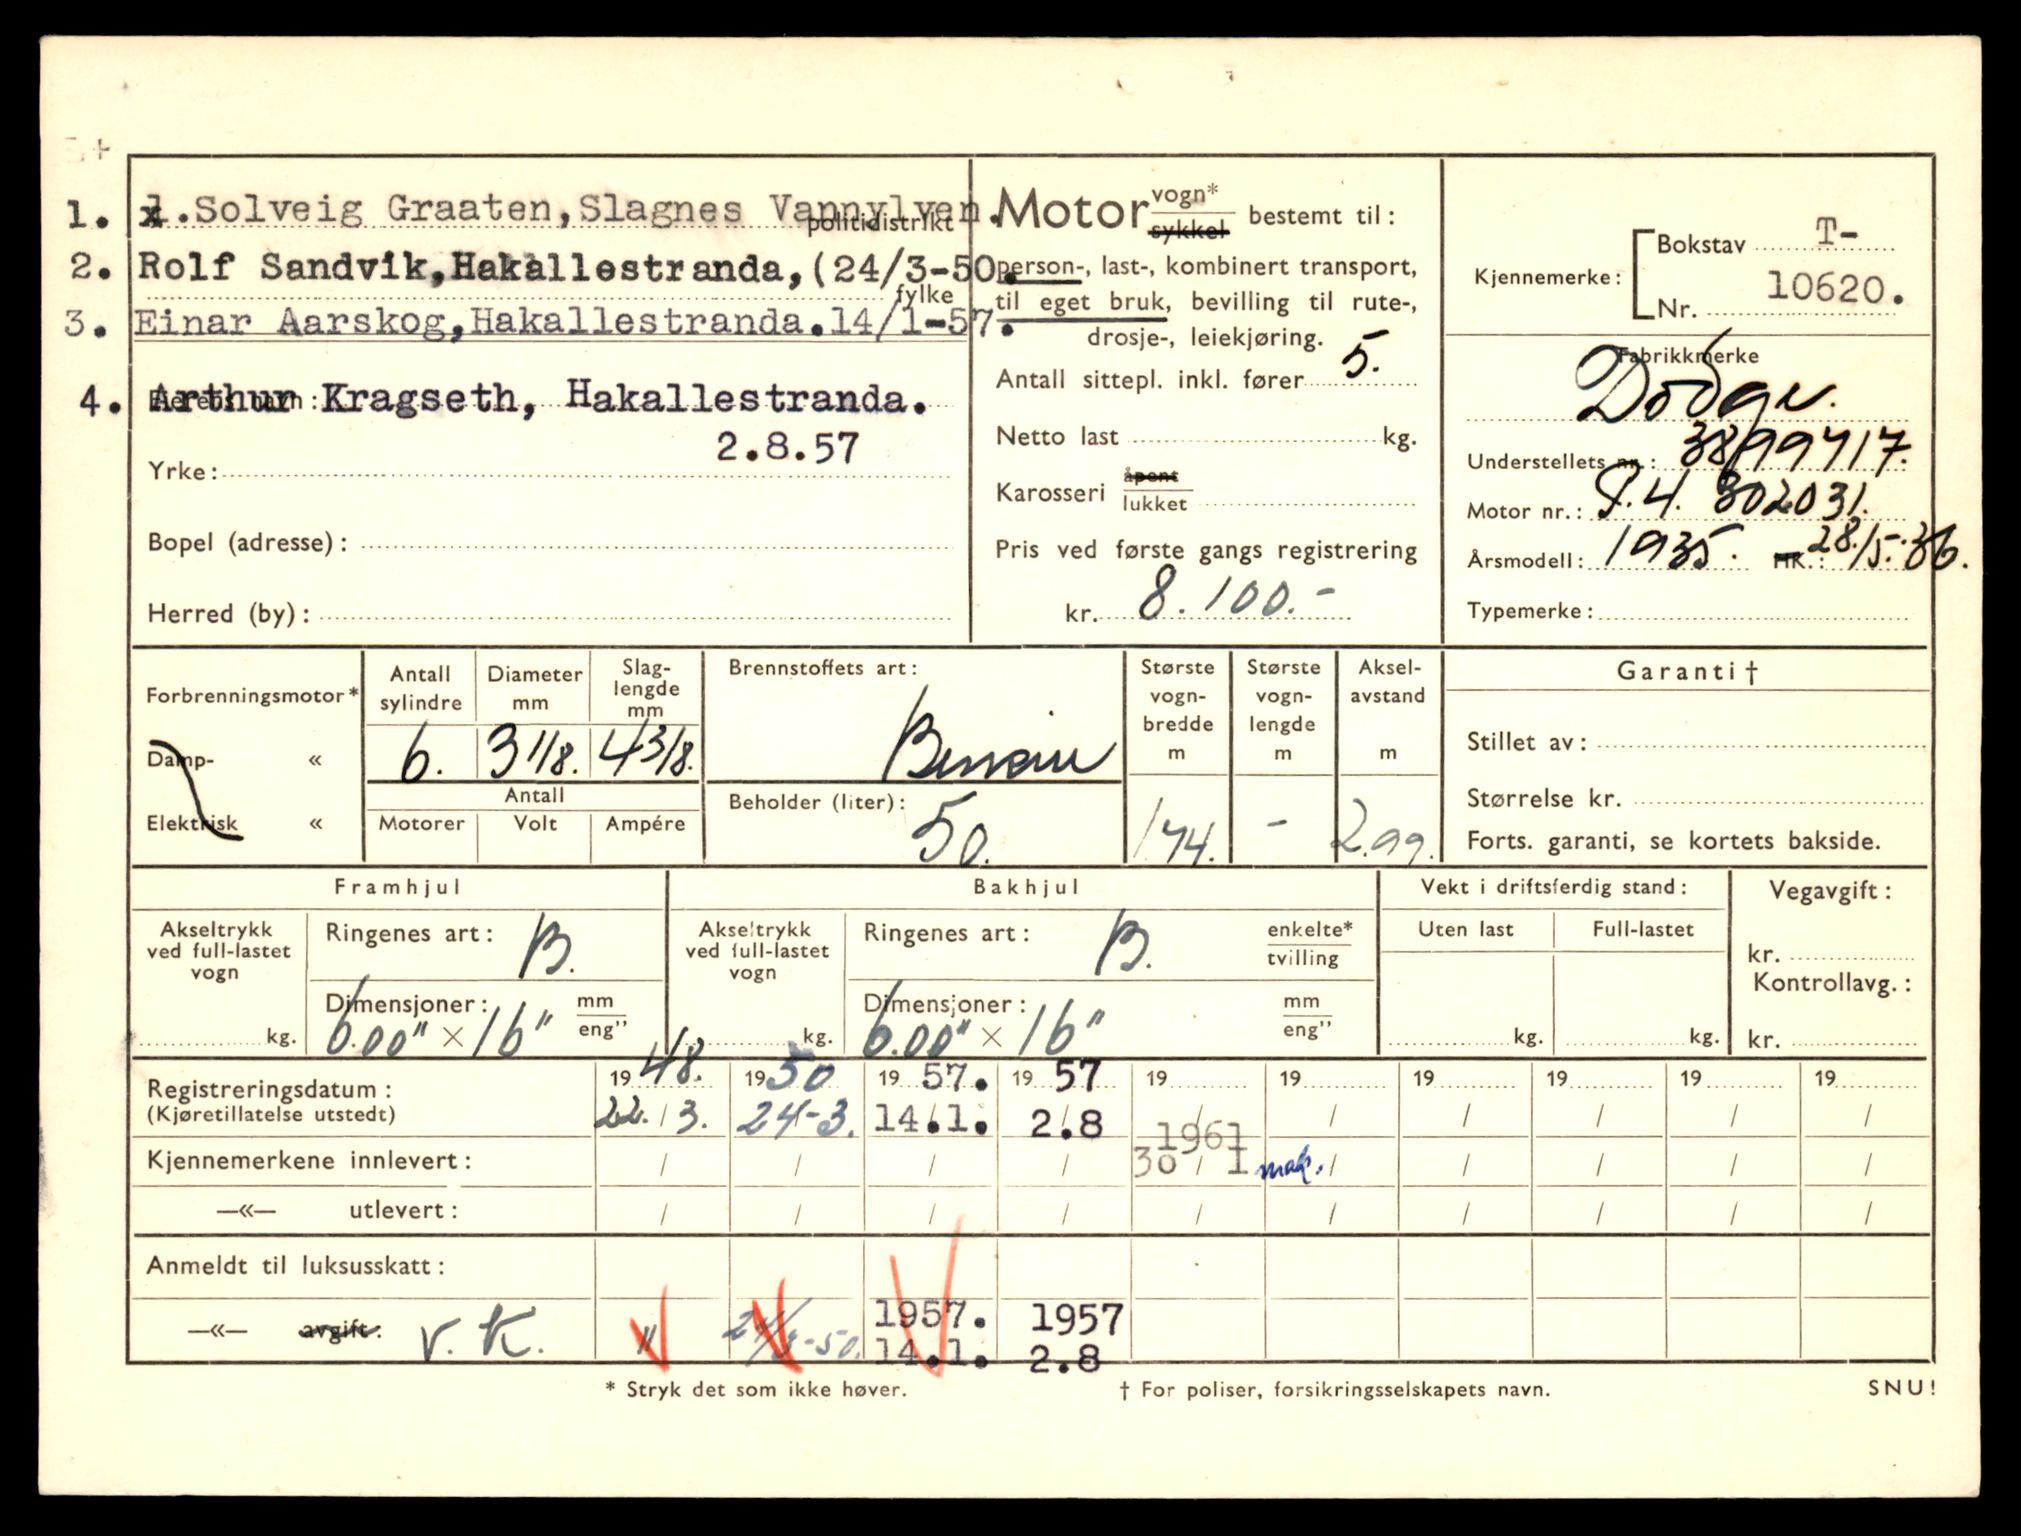 1. 1.Solveig Graaten,Slagnes Vannylven.
politidistrikt
2. Rolf Sandvik,Hakallestranda,(24/3-50.
fylke
3. Einar Aarskog,Hakallestranda.14/1-57.
4. Arthur Kragseth, Hakallestranda.
Eierens navn:
2.8.57
Yrke:
Bopel (adresse):
Herred (by):
Motor vogn* sykkel bestemt til:
person-, last-, kombinert transport,
til eget bruk, bevilling til rute-,
drosje-, leiekjøring.
Antall sittepl. inkl. fører 5.
Netto last kg.
Karosseri åpent lukket
Pris ved første gangs registrering
kr. 8.100.-
Kjennemerke: Bokstav T-
Nr. 10620.
Fabrikkmerke
Dodge.
Understellets nr.: 3899717.
Motor nr.: P.4. 302031.
Årsmodell: 1935. HK.: 28/5-36.
Typemerke:
Forbrenningsmotor*
Damp- «
Elektrisk «
Antall sylindre
6.
Diameter mm
3 1/8.
Slag-lengde mm
4 3/8.
Antall
Motorer Volt Ampére
Brennstoffets art:
Bensin
Beholder (liter):
50.
Største vogn-bredde m
1,74.
Største vogn-lengde m
-
Aksel-avstand m
2.99.
Garanti †
Stillet av:
Størrelse kr.
Forts. garanti, se kortets bakside.
Framhjul
Akseltrykk ved full-lastet vogn
kg.
Ringenes art: B.
Dimensjoner: mm eng"
6.00" × 16"
Bakhjul
Akseltrykk ved full-lastet vogn
kg.
Ringenes art: B. enkelte* tvilling
Dimensjoner: mm eng"
6.00" × 16"
Vekt i driftsferdig stand:
Uten last Full-lastet
kg. kg.
Vegavgift:
kr.
Kontrollavg.:
kr.
Registreringsdatum: 1948. 1950 1957. 1957 19 19 19 19 19 19
(Kjøretillatelse utstedt) 22./3. 24-3. 14.1. 2.8 / / / / / /
1961
Kjennemerkene innlevert: / / / / 30 / 1 mak. / / / / /
—«— utlevert: / / / / / / / / / /
Anmeldt til luksusskatt:
—«— avgift: V. K. " 24/3-50. 1957. 14.1. 1957 2.8
* Stryk det som ikke høver. † For poliser, forsikringsselskapets navn. SNU!